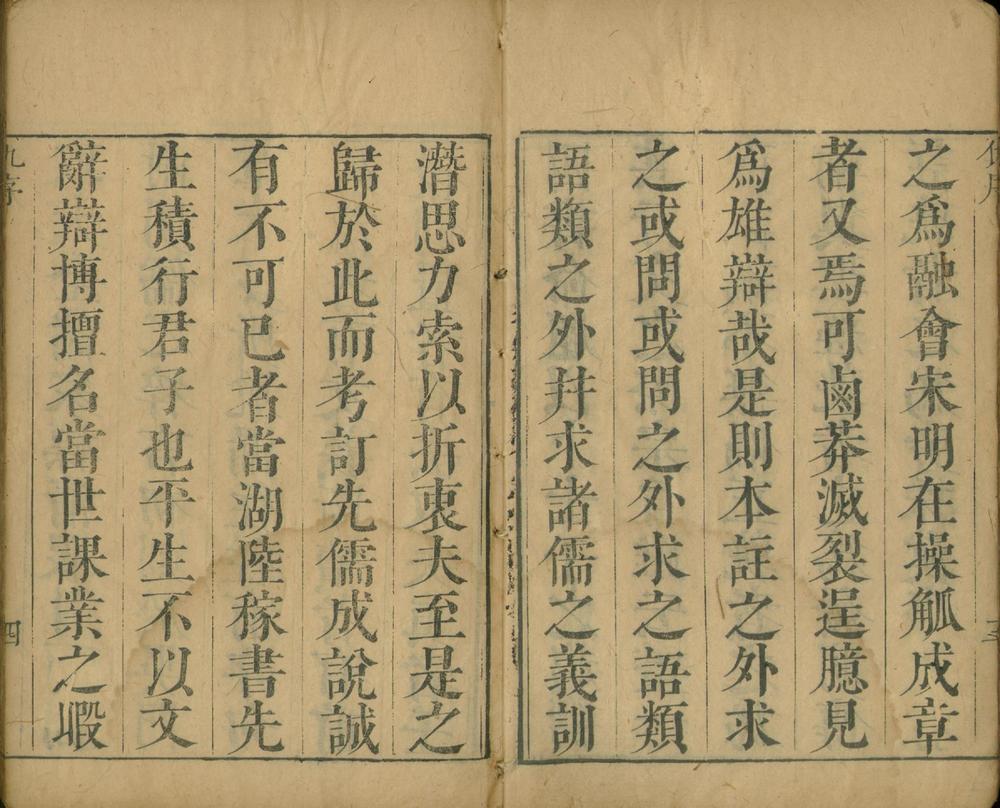 之爲融會宋明在操觚成章
者又焉可鹵莽滅裂逞臆見
爲雄辯哉是則本註之外求
之或問或問之外求之語類
語類之外并求諸儒之義訓
潛思力索以折衷夫至是之
歸於此而考訂先儒成說誠
有不可已者當湖陸稼書先
生積行君子也平生不以文
辭辯博擅名當世課業之暇
四